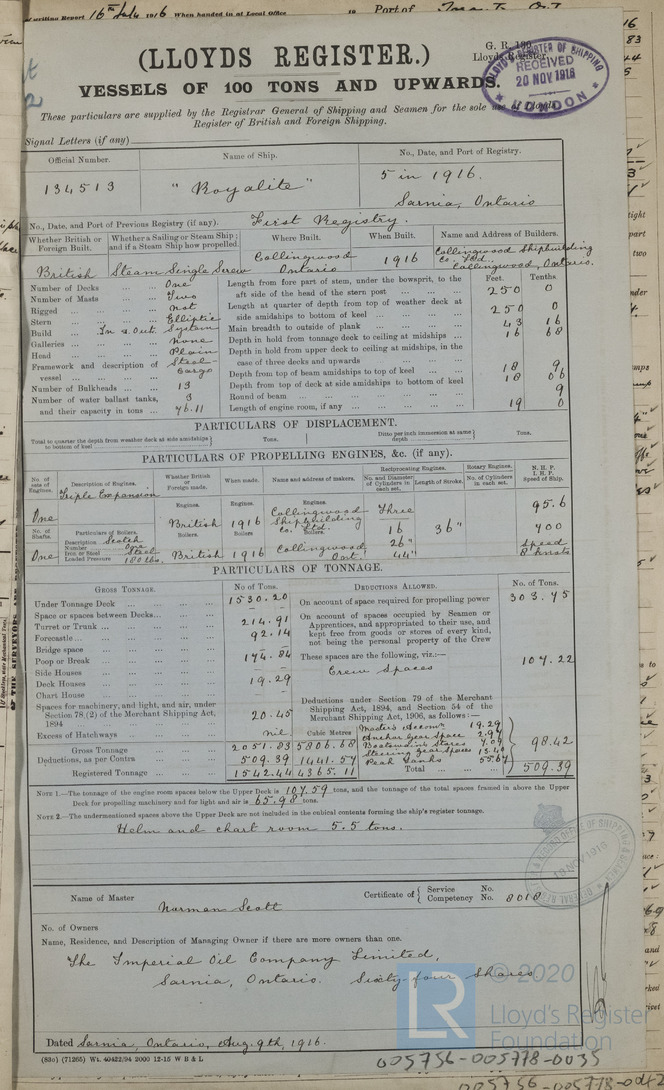 (LLOYDS REGISTER.)
G. R. 180
Lloyds Register
LLOYD'S REGISTER OF SHIPPING
RECEIVED
20 NOV 1916
LONDON
VESSELS OF 100 TONS AND UPWARDS.
These particulars are supplied by the Registrar General of Shipping and Seamen for the sole use of Lloyds
Register of British and Foreign Shipping.
Signal Letters (if any)
Official Number. Name of Ship. No., Date, and Port of Registry.
134513 "Royalite" 5 in 1916.
Sarnia, Ontario
No., Date, and Port of Previous Registry (if any). First Registry.
Whether British or Foreign Built. Whether a Sailing or Steam Ship; and if a Steam Ship how propelled. Where Built. When Built. Name and Address of Builders.
British Steam Single Screw Collingwood Ontario 1916 Collingwood Shipbuilding Co. Ltd. Collingwood, Ontario.
Feet. Tenths.
Number of Decks One
Number of Masts Two
Rigged not
Stern Elliptic
Build In & Out System
Galleries none
Head Plain
Framework and description of vessel Steel - Cargo
Number of Bulkheads 13
Number of water ballast tanks, 3
and their capacity in tons 76.11
Length from fore part of stem, under the bowsprit, to the aft side of the head of the stern post 250 0
Length at quarter of depth from top of weather deck at side amidships to bottom of keel 250 0
Main breadth to outside of plank 43 16
Depth in hold from tonnage deck to ceiling at midships 16 68
Depth in hold from upper deck to ceiling at midships, in the case of three decks and upwards
Depth from top of beam amidships to top of keel 18 9
Depth from top of deck at side amidships to bottom of keel 18 06
Round of beam 9
Length of engine room, if any 19 0
PARTICULARS OF DISPLACEMENT.
Total to quarter the depth from weather deck at side amidships to bottom of keel Tons. Ditto per inch immersion at same depth Tons.
PARTICULARS OF PROPELLING ENGINES, &c. (if any).
No. of sets of Engines. Description of Engines. Whether British or Foreign made. When made. Name and address of makers. Reciprocating Engines. Rotary Engines. N. H. P. I. H. P. Speed of Ship.
No. and Diameter of Cylinders in each set. Length of Stroke. No. of Cylinders in each set.
Triple Expansion
One Engines. British Engines. 1916 Engines. Collingwood Shipbuilding Co. Ltd. Three 95.6
No. of Shafts. Particulars of Boilers. Boilers. Boilers Boilers. 16 36" 700
Description Scotch
Number One 26"
Iron or Steel Steel Speed
One Loaded Pressure 180 lbs. British 1916 Collingwood Ont. 44" 8 knots
PARTICULARS OF TONNAGE.
GROSS TONNAGE. No of Tons. DEDUCTIONS ALLOWED. No. of Tons.
Under Tonnage Deck 1530.20
Space or spaces between Decks
Turret or Trunk 214.91
Forecastle 92.14
Bridge space
Poop or Break 174.84
Side Houses
Deck Houses 19.29
Chart House
Spaces for machinery, and light, and air, under Section 78, (2) of the Merchant Shipping Act, 1894 20.45
Excess of Hatchways nil Cubic Metres
Gross Tonnage 2051.83 5806.68
Deductions, as per Contra 509.39 1441.57
Registered Tonnage 1542.44 4365.11
On account of space required for propelling power 303.75
On account of spaces occupied by Seamen or Apprentices, and appropriated to their use, and kept free from goods or stores of every kind, not being the personal property of the Crew
These spaces are the following, viz.:—
Crew Spaces 107.22
Deductions under Section 79 of the Merchant Shipping Act, 1894, and Section 54 of the Merchant Shipping Act, 1906, as follows:—
Master's Accomn 19.29
Anchor Gear Space 2.94
Boatswains Stores 7.04
Steering gear Spaces 13.48
Peak Tanks 55.67
98.42
Total 509.39
NOTE 1.—The tonnage of the engine room spaces below the Upper Deck is 107.59 tons, and the tonnage of the total spaces framed in above the Upper Deck for propelling machinery and for light and air is 65.98 tons.
NOTE 2.—The undermentioned spaces above the Upper Deck are not included in the cubical contents forming the ship's register tonnage.
Helm and chart room 5.5 tons.
18 NOV 1916
Name of Master Norman Scott Certificate of { Service No.
Competency No. 8018
No. of Owners
Name, Residence, and Description of Managing Owner if there are more owners than one.
The Imperial Oil Company Limited,
Sarnia, Ontario. Sixty-four shares.
LR
© 2020
Lloyd's Register
Foundation
Dated Sarnia, Ontario, Aug. 9th, 1916.
(83o) (71265) Wt. 40422/94 2000 12-15 W B & L
005756-005778-0035